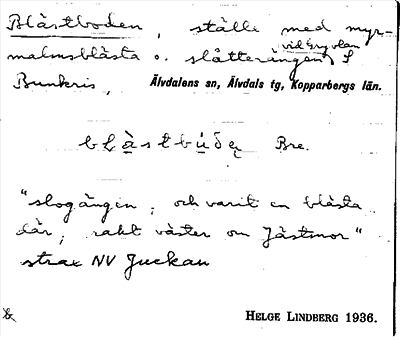 Blästboden, ställe med myr-
malmsblästa o. slåtteräng vid Gryvlan S
Bunkris, Älvdalens sn, Älvdals tg, Kopparbergs län.
blästbúðen Bre.
"slogängin, och varit en blästa
där, rakt väster om Jästmor"
strax NV Juckan
HELGE LINDBERG 1936.